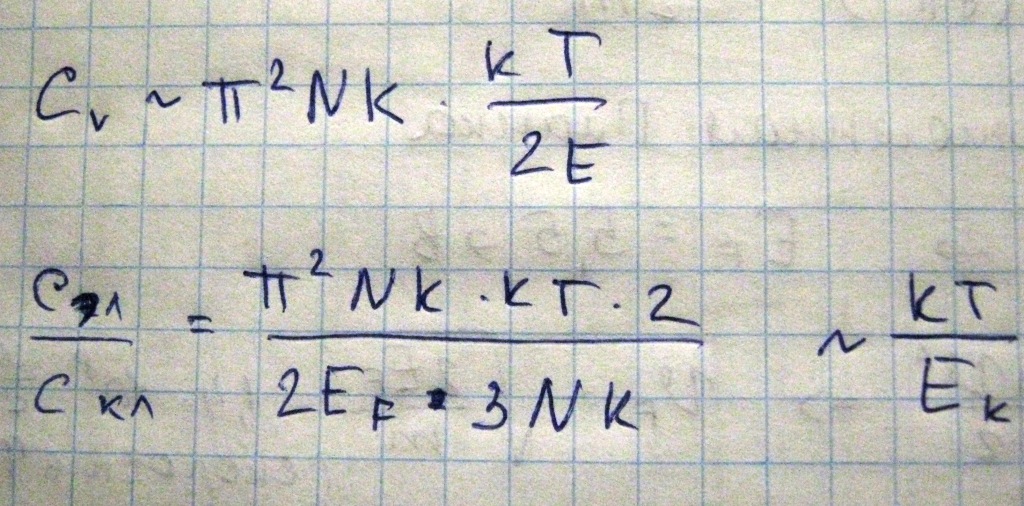 C_v ~ π²Nk · kT / 2E
C_эл / C_кл = π²Nk · kT · 2 / 2E_F · 3Nk ~ kT / E_k